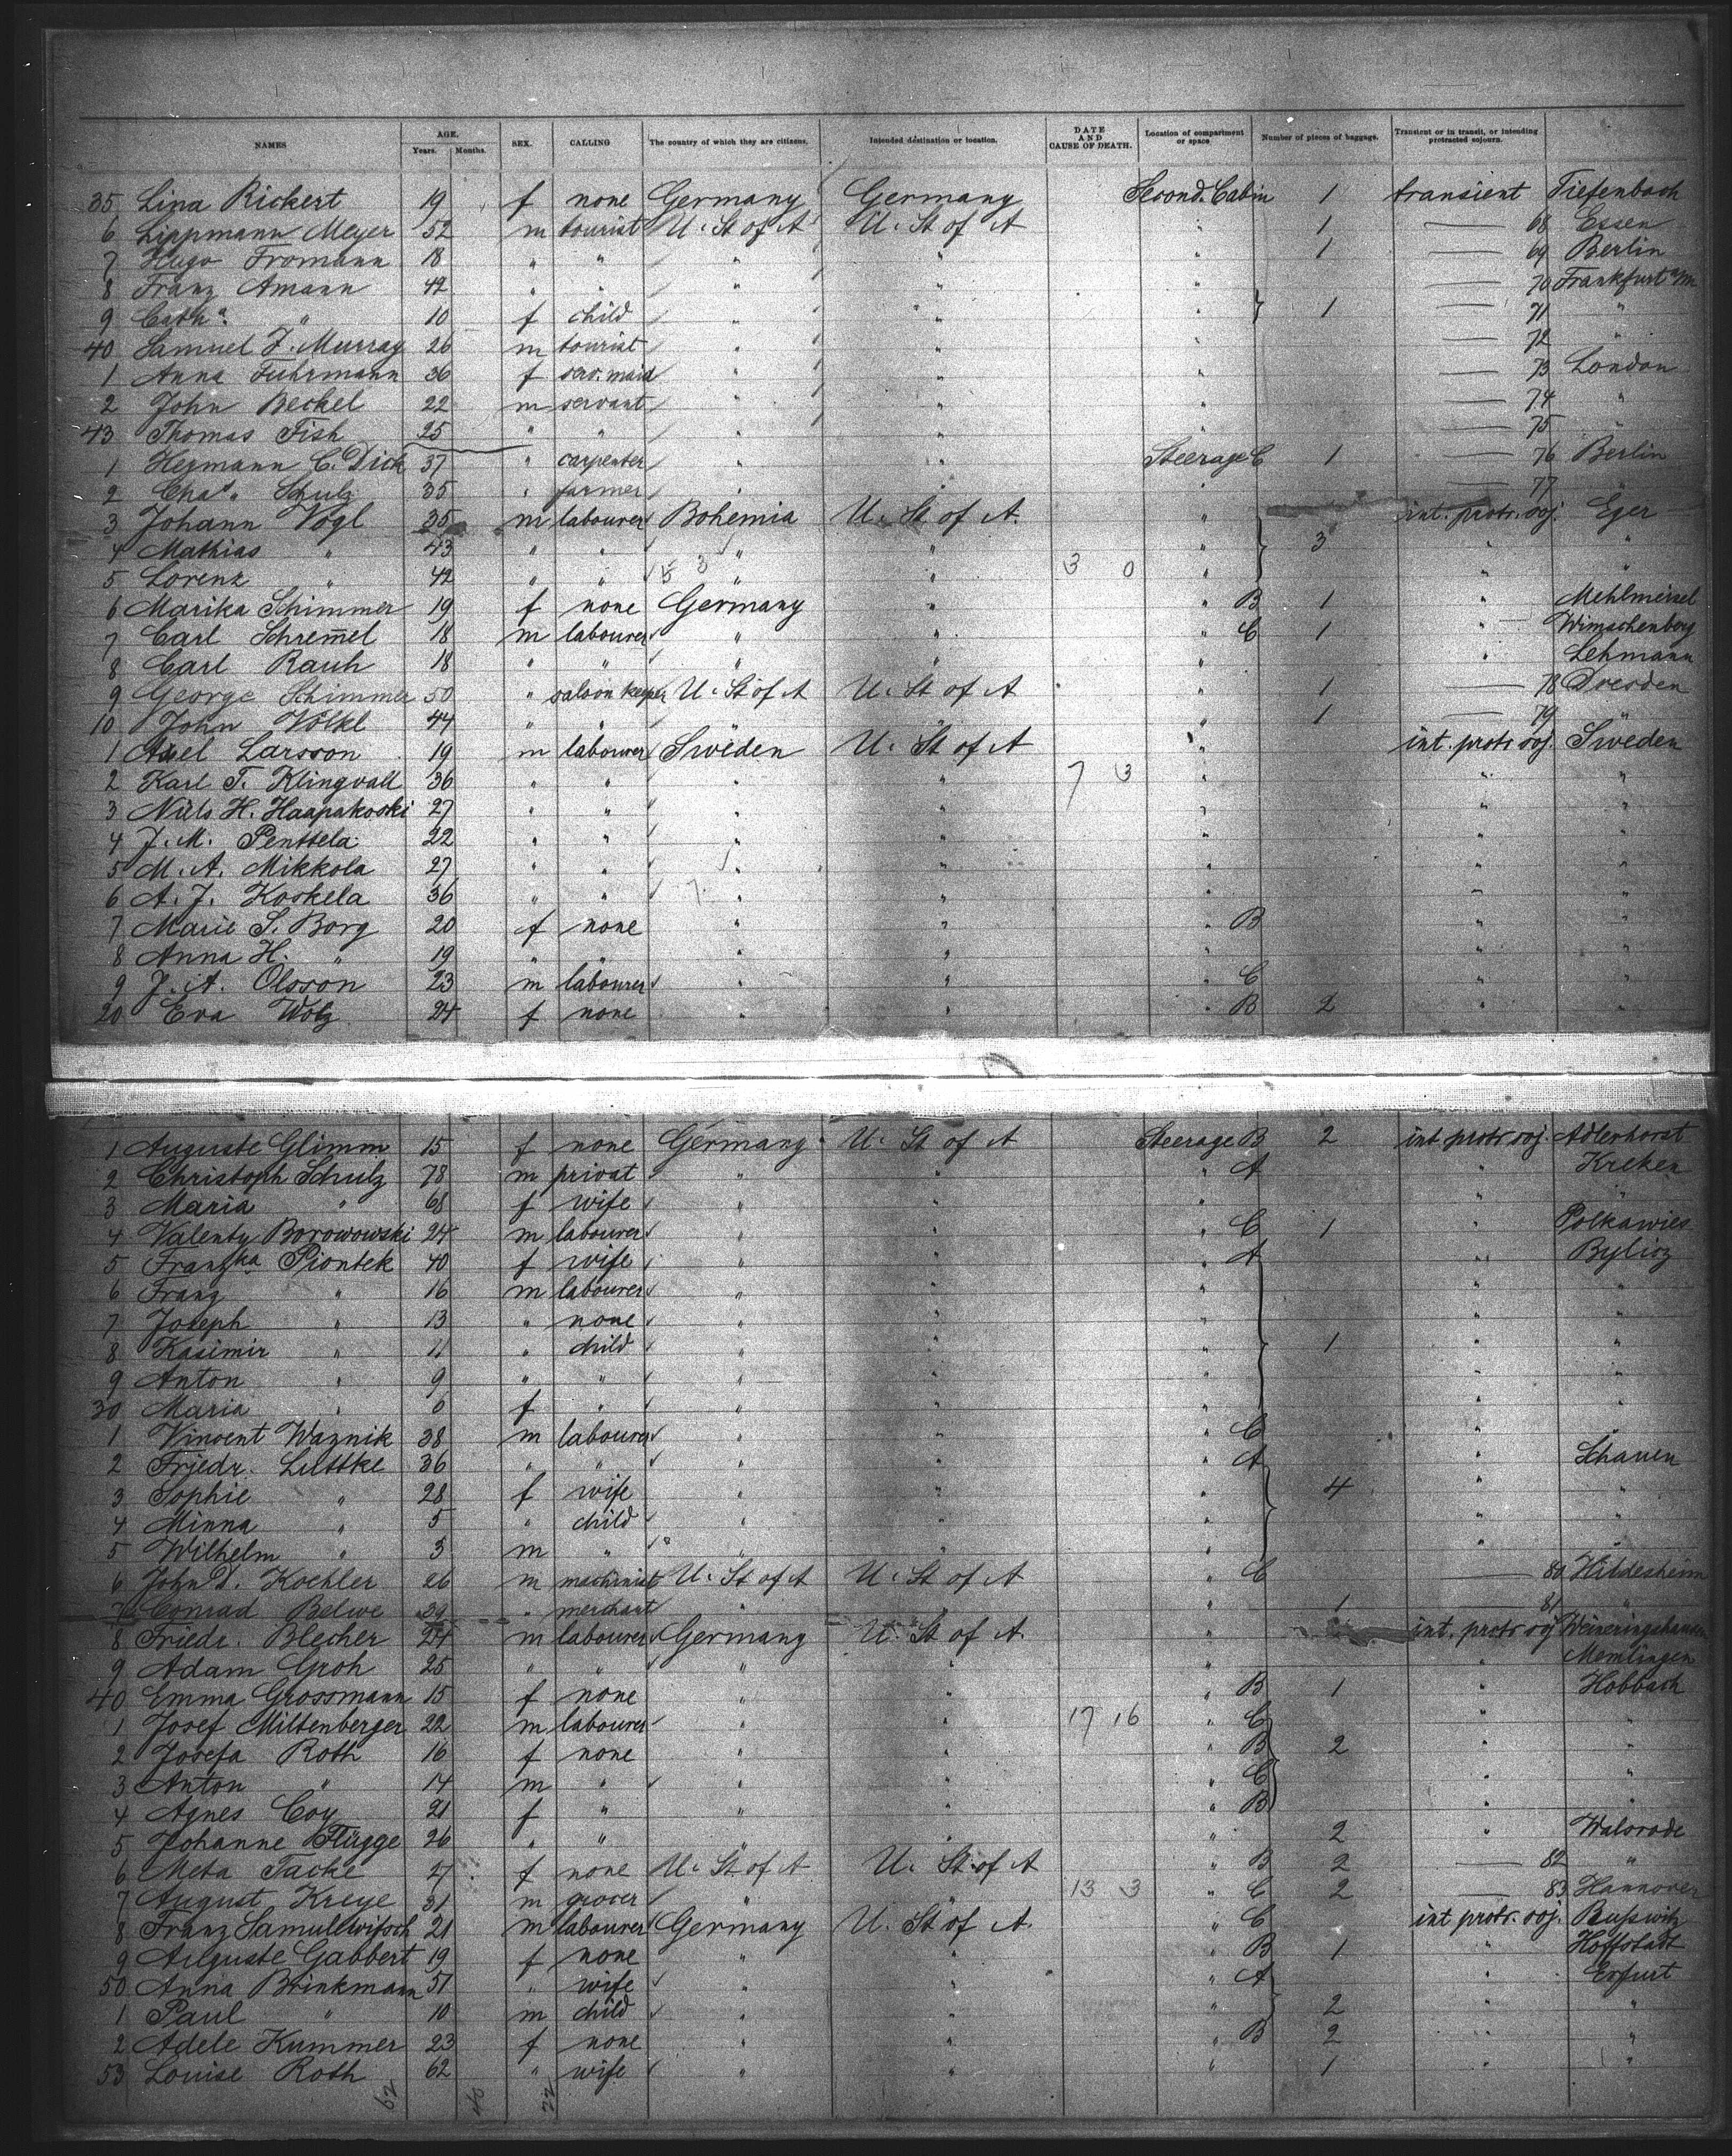 NAMES AGE. Years. Months. SEX. CALLING The country of which they are citizens. Intended destination or location. DATE AND CAUSE OF DEATH. Location of compartment or space Number of pieces of baggage. Transient or in transit, or intending protracted sojourn.
35 Lina Rickert 19 f none Germany Germany Second Cabin 1 transient Tiefenbach
6 Lippmann Meyer 52 m tourist U. St of A U. St of A " 1 — 68 Essen
7 Hugo Fromann 18 " " " " " 1 — 69 Berlin
8 Franz Amann 42 " " " " " — 70 Frankfurt a/m
9 Cath a. " 10 f child " " " 1 — 71 "
40 Samuel J. Murray 26 m tourist " " " — 72 "
1 Anna Fuhrmann 36 f serv. maid " " " — 73 London
2 John Beckel 22 m servant " " " — 74 "
43 Thomas Fish 25 " " " " " — 75 "
1 Hermann C. Dick 37 " carpenter " " Steerage C 1 — 76 Berlin
2 Chas. Schulz 35 " farmer " " " — 77 "
3 Johann Vogl 35 m labourer Bohemia U. St of A. " int. protr. soj. Eger
4 Mathias " 43 " " " " " 3 " "
5 Lorenz " 42 " " 5 3 " " 3 0 " " "
6 Marika Schimmer 19 f none Germany " " B 1 " Mehlmeisel
7 Carl Schrem̄el 18 m labourer " " " C 1 "
8 Carl Rauh 18 " " " " " " Lehmann
9 George Schimmer 50 " saloon keeper U. St of A U. St of A " 1 — 78 Dresden
10 John Völkl 44 " " " " " 1 — 79 "
1 Axel Larsson 19 m labourer Sweden U. St of A " int. protr soj. Sweden
2 Karl T. Klingvall 36 " " " " 7 3 " " "
3 Nuls H. Haapakoski 27 " " " " " " "
4 J. M. Penttela 22 " " " " " " "
5 M. A. Mikkola 27 " " " " " " "
6 A. J. Koskela 36 " " 7. " " " " "
7 Marie S. Borg 20 f none " " " B " "
8 Anna H. " 19 " " " " " " "
9 J. A. Olsson 23 m labourer " " " C " "
20 Eva Wolz 24 f none " " " B 2 " "
1 Auguste Glimm 15 f none Germany U. St of A Steerage B 2 int. protr soj. Adlerhorst
2 Christoph Schulz 78 m privat " " " A " Kreken
3 Maria " 68 f wife " " " " "
4 Valenty Borowowski 24 m labourer " " " C 1 " Polkawies
5 Franzka Piontek 40 f wife " " " A " Bylicz
6 Franz " 16 m labourer " " " " "
7 Joseph " 13 " none " " " " "
8 Kasimir " 11 " child " " " 1 " "
9 Anton " 9 " " " " " " "
30 Maria " 6 f " " " " " "
1 Vincent Waznik 38 m labourer " " " C " "
2 Friedr. Luttke 36 " " " " " A " Schauen
3 Sophie " 28 f wife " " " 4 " "
4 Minna " 5 " child " " " " "
5 Wilhelm " 3 m " " " " " "
6 John D. Koehler 26 m machinist U. St of A U. St of A " C — 80 Hildesheim
7 Conrad Belwe 39 " merchant " " " 1 — 81 "
8 Friedr. Blecher 24 m labourer Germany U. St of A. " int. protr soj Weineringshausen
9 Adam Groh 25 " " " " " " Memlingen
40 Emma Grossmann 15 f none " " " B 1 " Hobbach
1 Josef Miltenberger 22 m labourer " " 17 16 " C " "
2 Josefa Roth 16 f none " " " B 2 " "
3 Anton " 14 m " " " " C " "
4 Agnes Coy 21 f " " " " B " "
5 Johanne Flügge 26 " " " " " 2 " Walsrode
6 Meta Tacke 27 f none U. St of A U. St of A " B 2 — 82 "
7 August Kreye 31 m grocer " " 13 3 " C 2 — 83 Hannover
8 Franz Samullwitsch 21 m labourer Germany U. St of A. " C int protr. soj. Bußwitz
9 Auguste Gabbert 19 f none " " " B 1 " Hoffstadt
50 Anna Brinkmann 51 " wife " " " A " Erfurt
1 Paul " 10 m child " " " 2 " "
2 Adele Kummer 23 f none " " " B 2 " "
53 Louise Roth 62 " wife " " " 1 " "
62 40 22